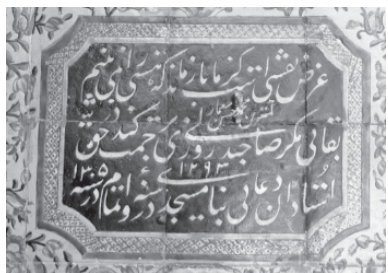 غرض نقشی است کز ما باز ماند که هستی را نمی بینم
بقائی مگر صاحبدلی روزی رحمت کند در حق
استادان دعائی بنا مسجد در سنه ۱۲۹۳ و اتمام در سنه ۱۳۰۵